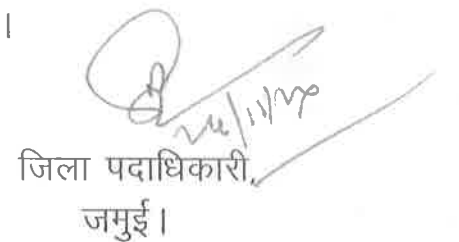 ।
जिला पदाधिकारी,
जमुई।